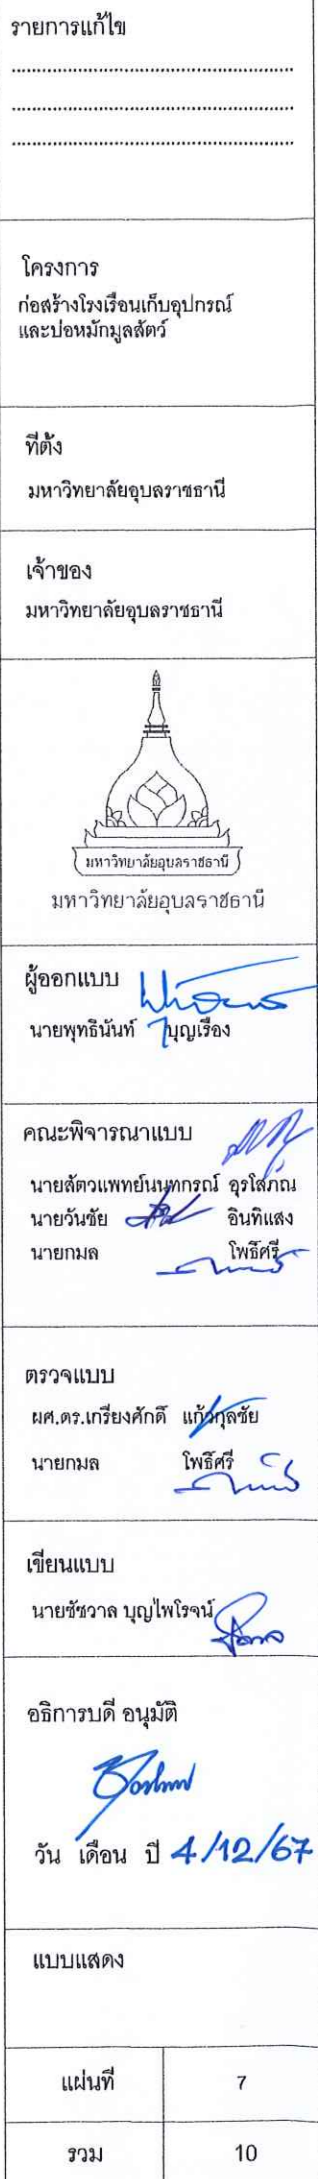 รายการแก้ไข
โครงการ
ก่อสร้างโรงเรือนเก็บอุปกรณ์
และบ่อหมักมูลสัตว์
ที่ตั้ง
มหาวิทยาลัยอุบลราชธานี
เจ้าของ
มหาวิทยาลัยอุบลราชธานี
มหาวิทยาลัยอุบลราชธานี
มหาวิทยาลัยอุบลราชธานี
ผู้ออกแบบ
นายพุทธินันท์ บุญเรือง
คณะพิจารณาแบบ
นายสัตวแพทย์นนทกรณ์ อุรโสภณ
นายวันชัย อินทิแสง
นายกมล โพธิ์ศรี
ตรวจแบบ
ผศ.ดร.เกรียงศักดิ์ แก้วกุลชัย
นายกมล โพธิ์ศรี
เขียนแบบ
นายชัชวาล บุญไพโรจน์
อธิการบดี อนุมัติ
วัน เดือน ปี 4/12/67
แบบแสดง
แผ่นที่ 7
รวม 10